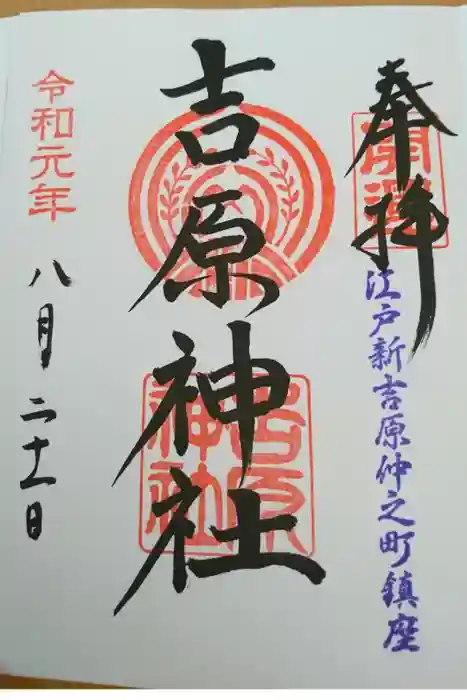 奉拝
開運
江戸新吉原仲之町鎮座
吉原神社
吉原
神社
令和元年
八月二十一日